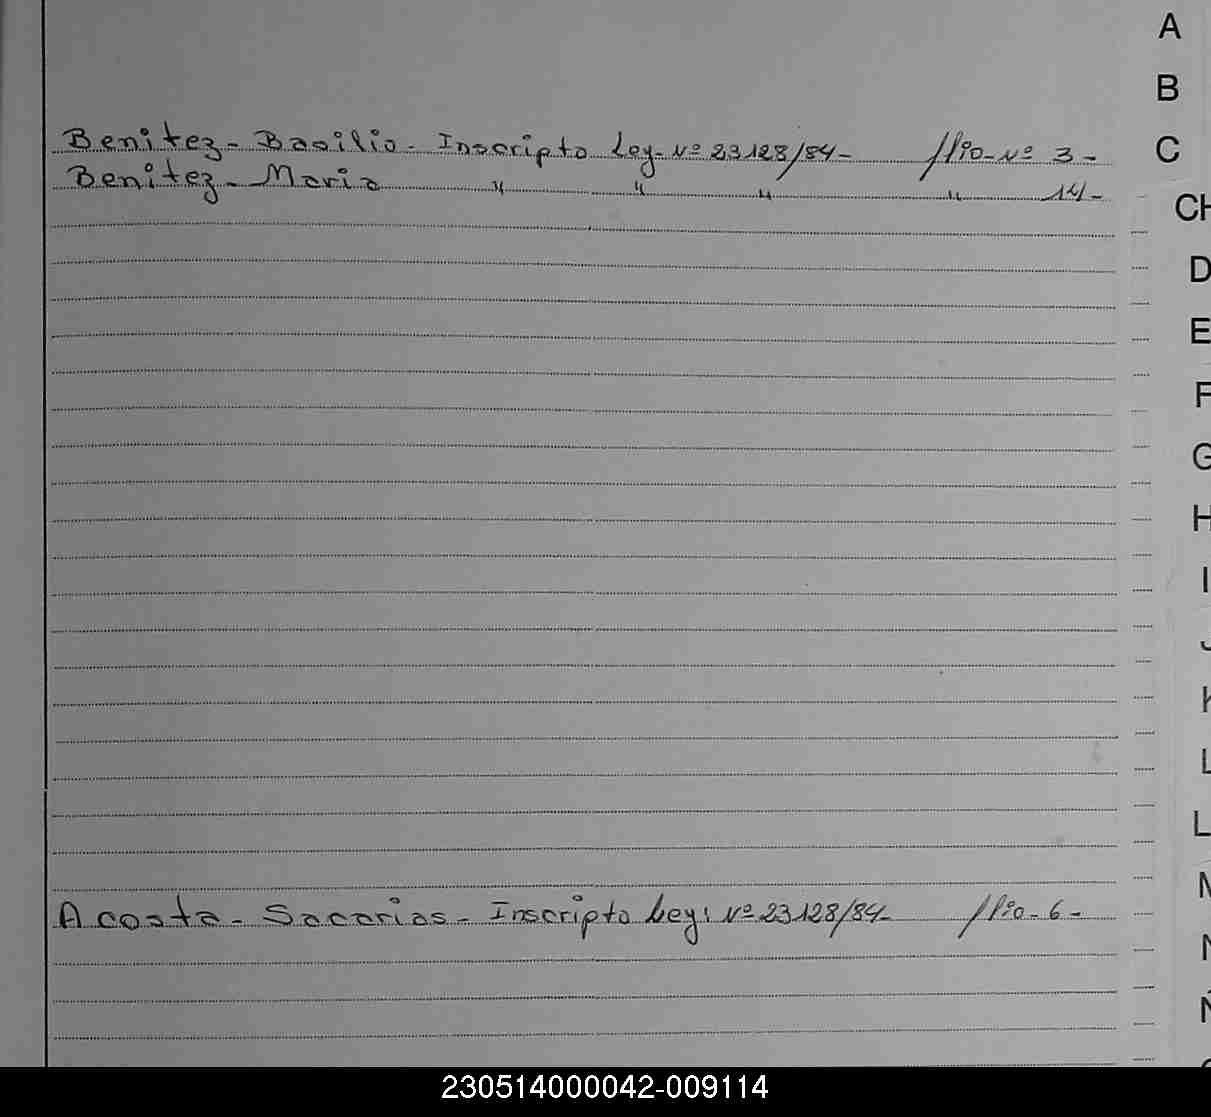 A
B
Benitez - Basilio - Inscripto Ley - Nº 23128/84 - flio - Nº 3 -
C
Benitez - Maria " " " " 14 -
CH
D
E
F
G
H
I
J
K
L
L
M
N
Ñ
Acosta - Sacarias - Inscripto Ley: Nº 23128/84 - flio - 6 -
230514000042-009114